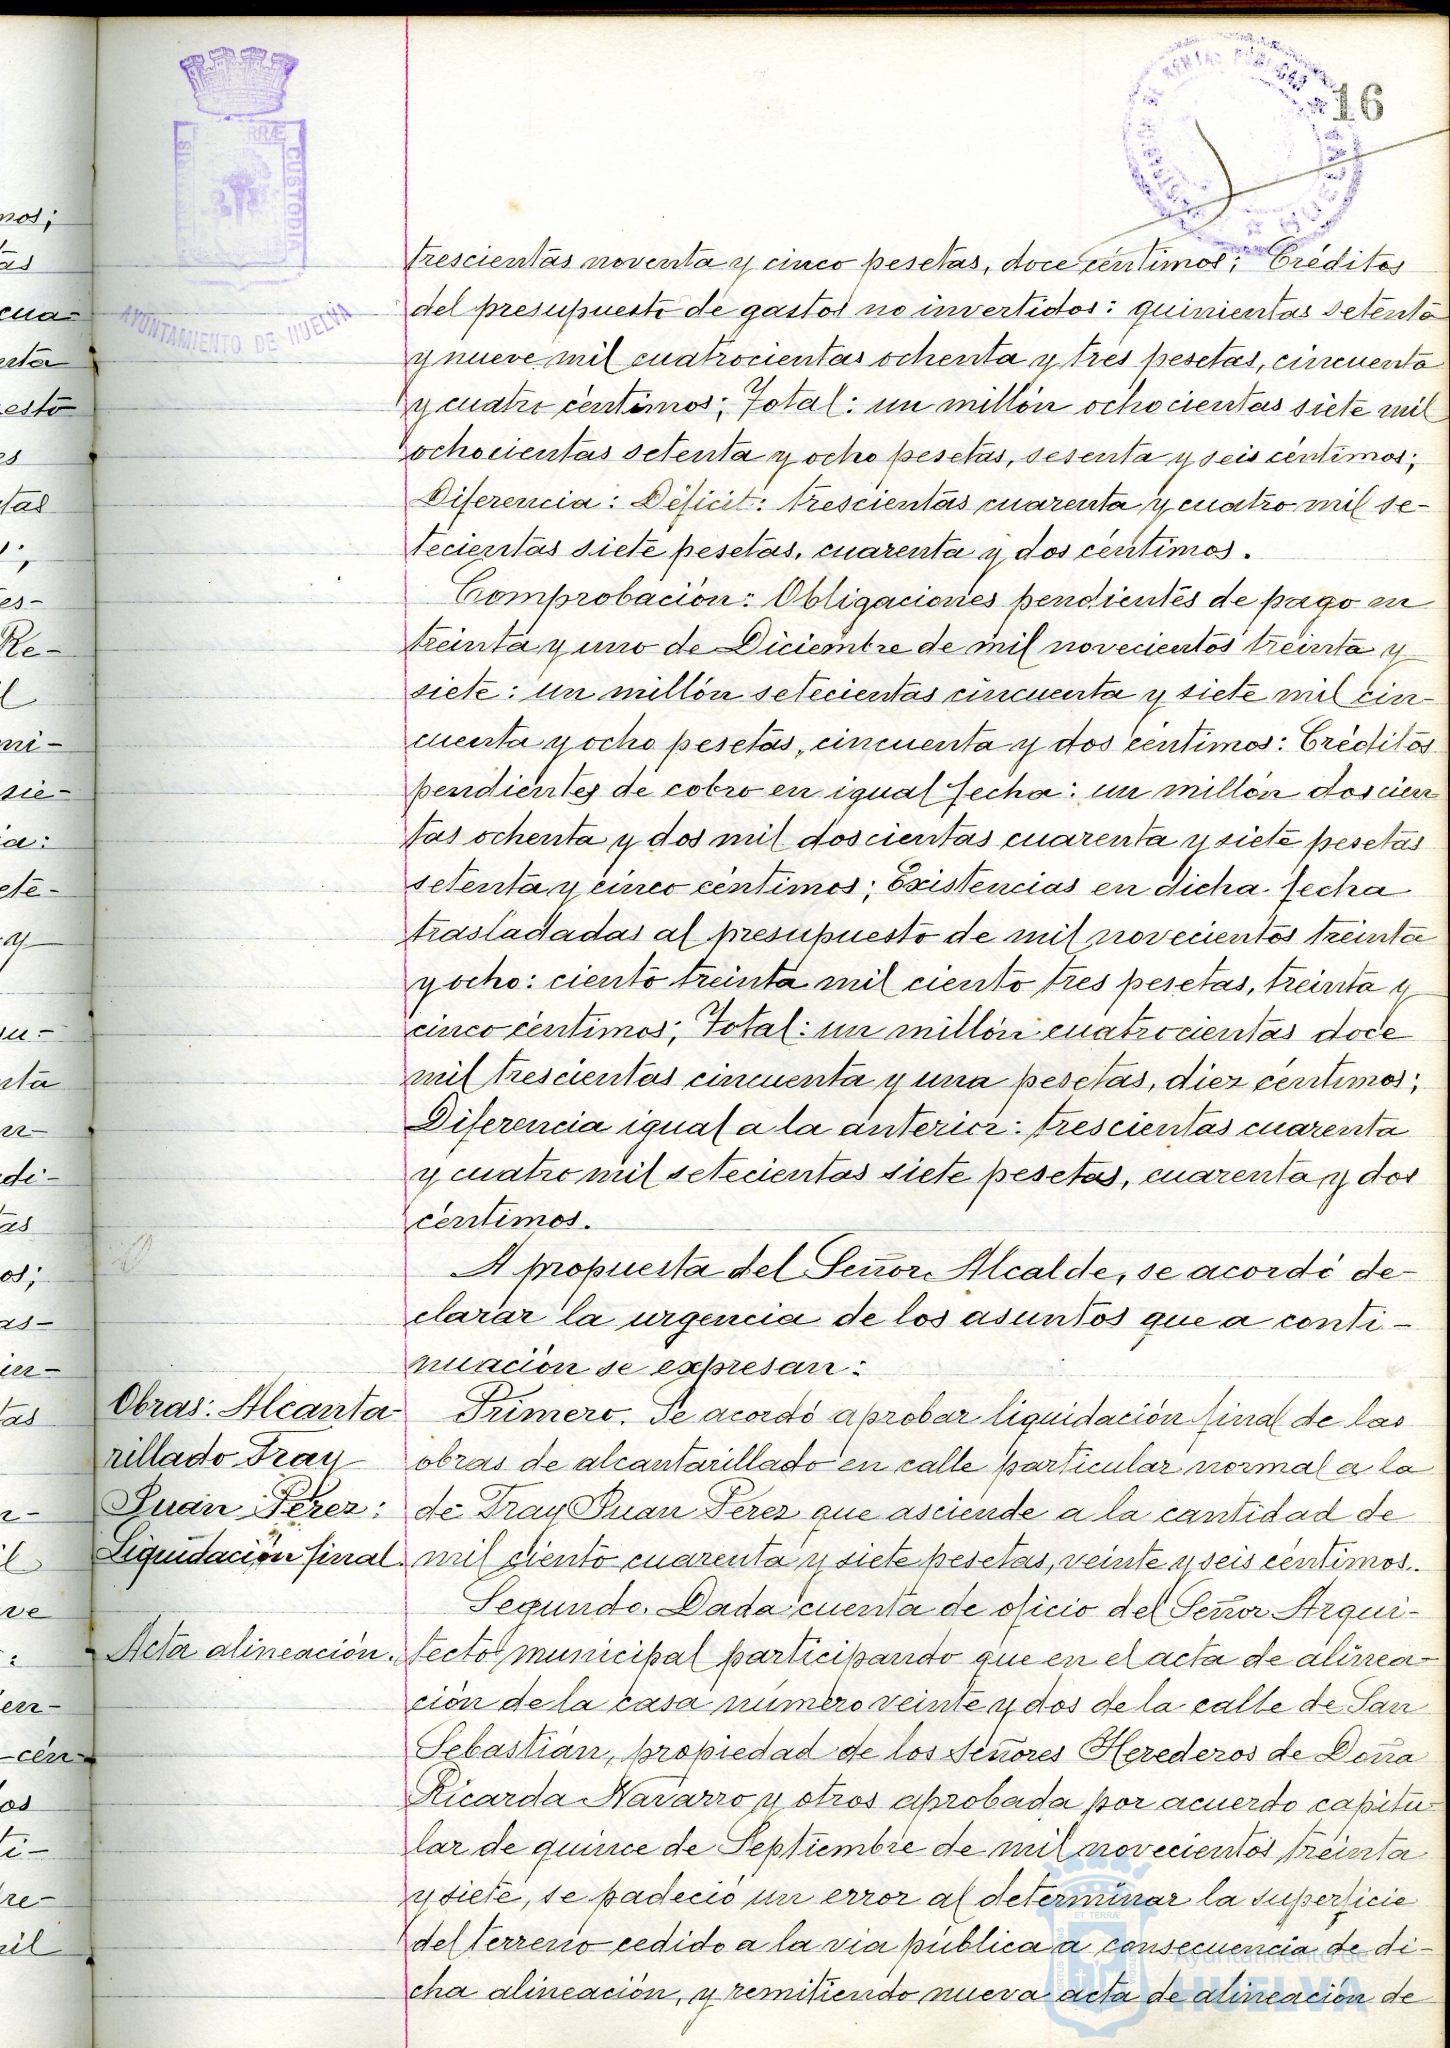 16
AYUNTAMIENTO DE HUELVA
trescientas noventa y cinco pesetas, doce céntimos; Créditos
del presupuesto de gastos no invertidos: quinientas setenta
y nueve mil cuatrocientas ochenta y tres pesetas, cincuenta
y cuatro céntimos; Total: un millón ochocientas siete mil
ochocientas setenta y ocho pesetas, sesenta y seis céntimos;
Diferencia: Déficit: trescientas cuarenta y cuatro mil se-
tecientas siete pesetas, cuarenta y dos céntimos.
Comprobación: Obligaciones pendientes de pago en
treinta y uno de Diciembre de mil novecientos treinta y
siete: un millón setecientas cincuenta y siete mil cin-
cuenta y ocho pesetas, cincuenta y dos céntimos: Créditos
pendientes de cobro en igual fecha: un millón doscien
tas ochenta y dos mil doscientas cuarenta y siete pesetas
setenta y cinco céntimos; Existencias en dicha fecha
trasladadas al presupuesto de mil novecientos treinta
y ocho: ciento treinta mil ciento tres pesetas, treinta y
cinco céntimos; Total: un millón cuatrocientas doce
mil trescientas cincuenta y una pesetas, diez céntimos;
Diferencia igual a la anterior: trescientas cuarenta
y cuatro mil setecientas siete pesetas, cuarenta y dos
céntimos.
A propuesta del Señor Alcalde, se acordó de-
clarar la urgencia de los asuntos que a conti-
nuación se expresan:
Obras: Alcanta-
rillado Fray
Juan Pérez:
Liquidación final.
Primero. Se acordó aprobar liquidación final de las
obras de alcantarillado en calle particular normal a la
de Fray Juan Perez que asciende a la cantidad de
mil ciento cuarenta y siete pesetas, veinte y seis céntimos.
Acta alineación.
Segundo. Dada cuenta de oficio del Señor Arqui-
tecto municipal participando que en el acta de alinea-
ción de la casa número veinte y dos de la calle de San
Sebastián, propiedad de los señores Herederos de Doña
Ricarda Navarro y otros aprobada por acuerdo capitu-
lar de quince de Septiembre de mil novecientos treinta
y siete, se padeció un error al determinar la superficie
del terreno cedido a la via pública a consecuencia de di-
cha alineación, y remitiendo nueva acta de alineación de
Ayuntamiento de
HUELVA